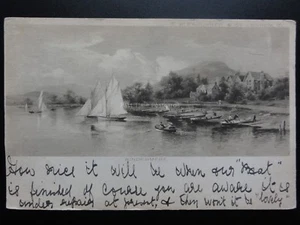 How nice it will be when our "Boat"
is finished of course you are aware it is
under repairs at present, & they won't it be "lovely"